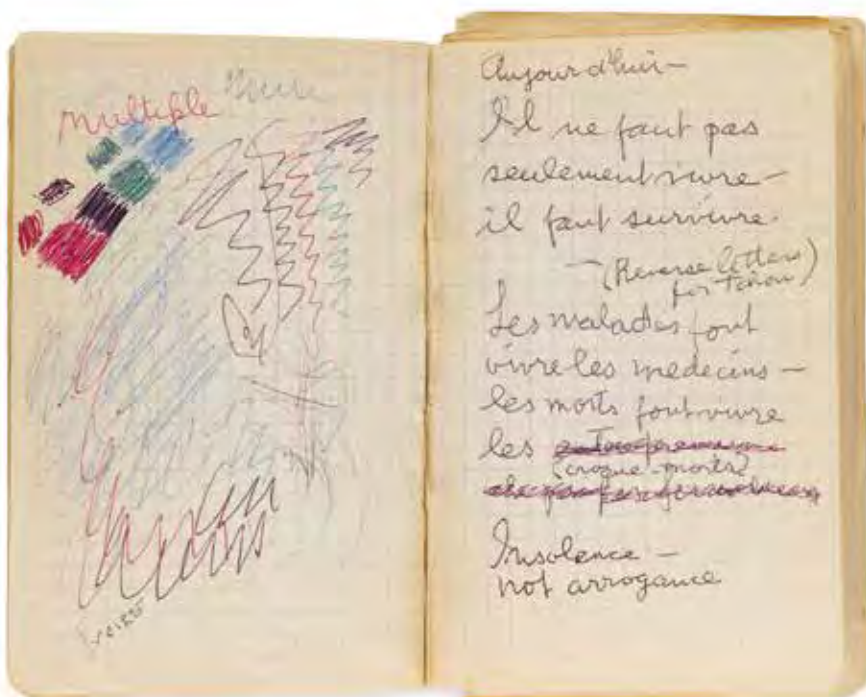 multiple
Aujourd'hui —
Il ne faut pas
seulement vivre —
il faut survivre.
— (Reverse letters
for
Les malades font
vivre les medecins —
les morts font vivre
les
(croque-morts)
Insolence —
not arrogance